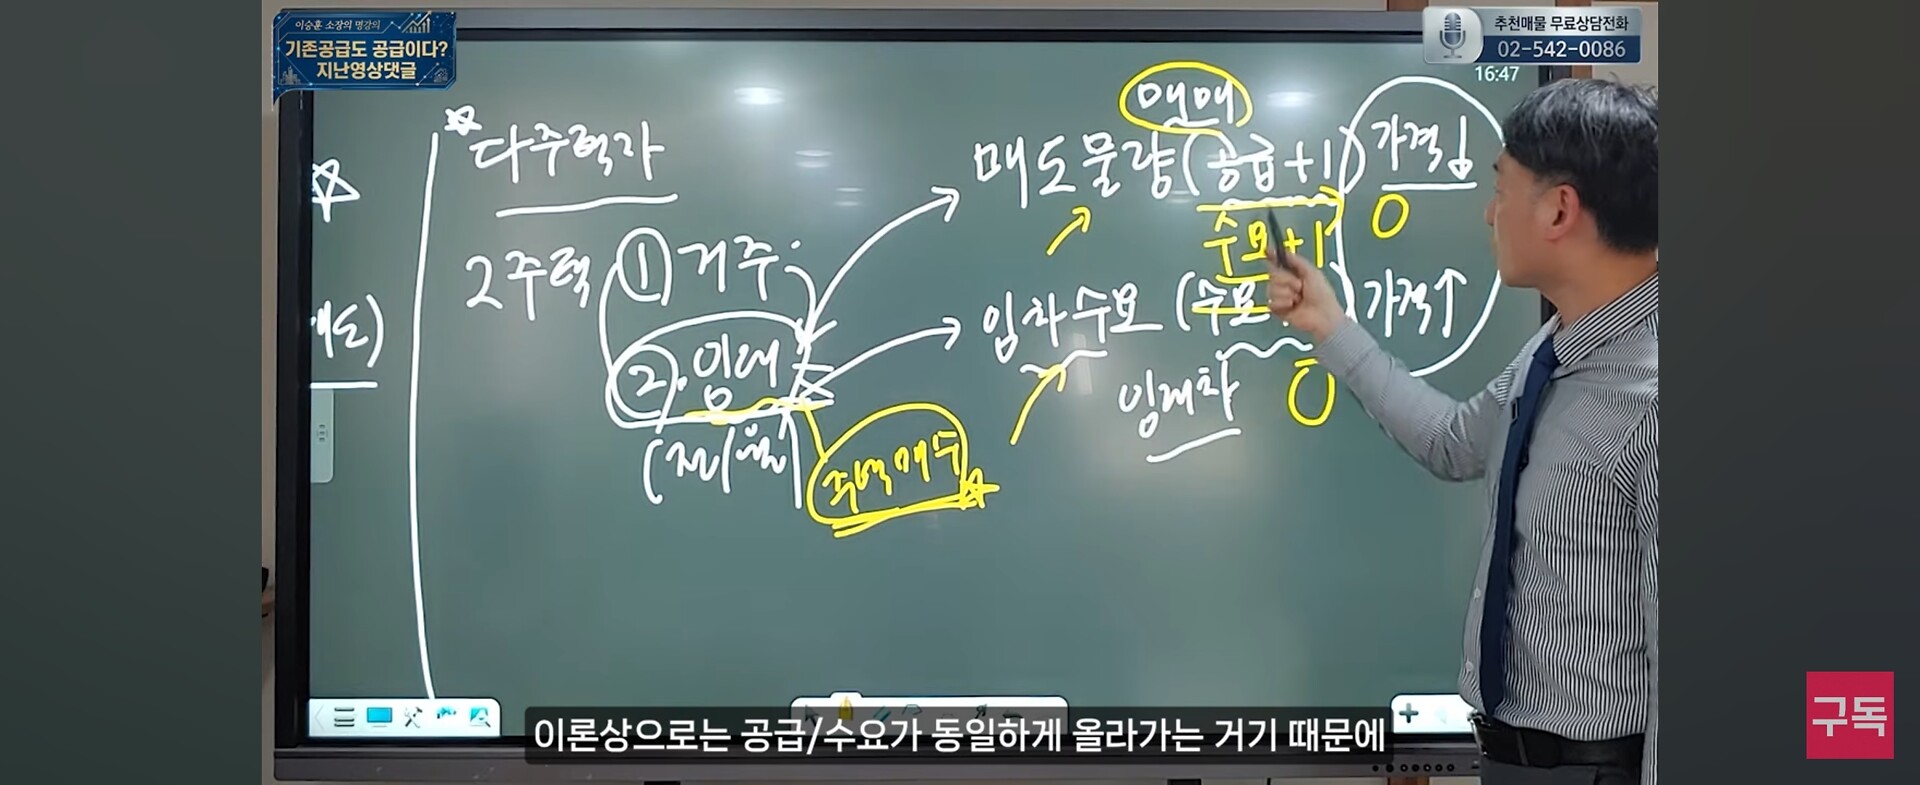 이승훈 소장의 명강의
기존공급도 공급이다?
지난영상댓글
추천매물 무료상담전화
02-542-0086
16:47
매매
다주택자
매도물량(공급+1) 가격↓
수요+1 0
2주택 ① 거주
임차수요 (수요 가격↑
매도)
② 임대
임대차 0
(전/월
주택매수
이론상으로는 공급/수요가 동일하게 올라가는 거기 때문에
구독